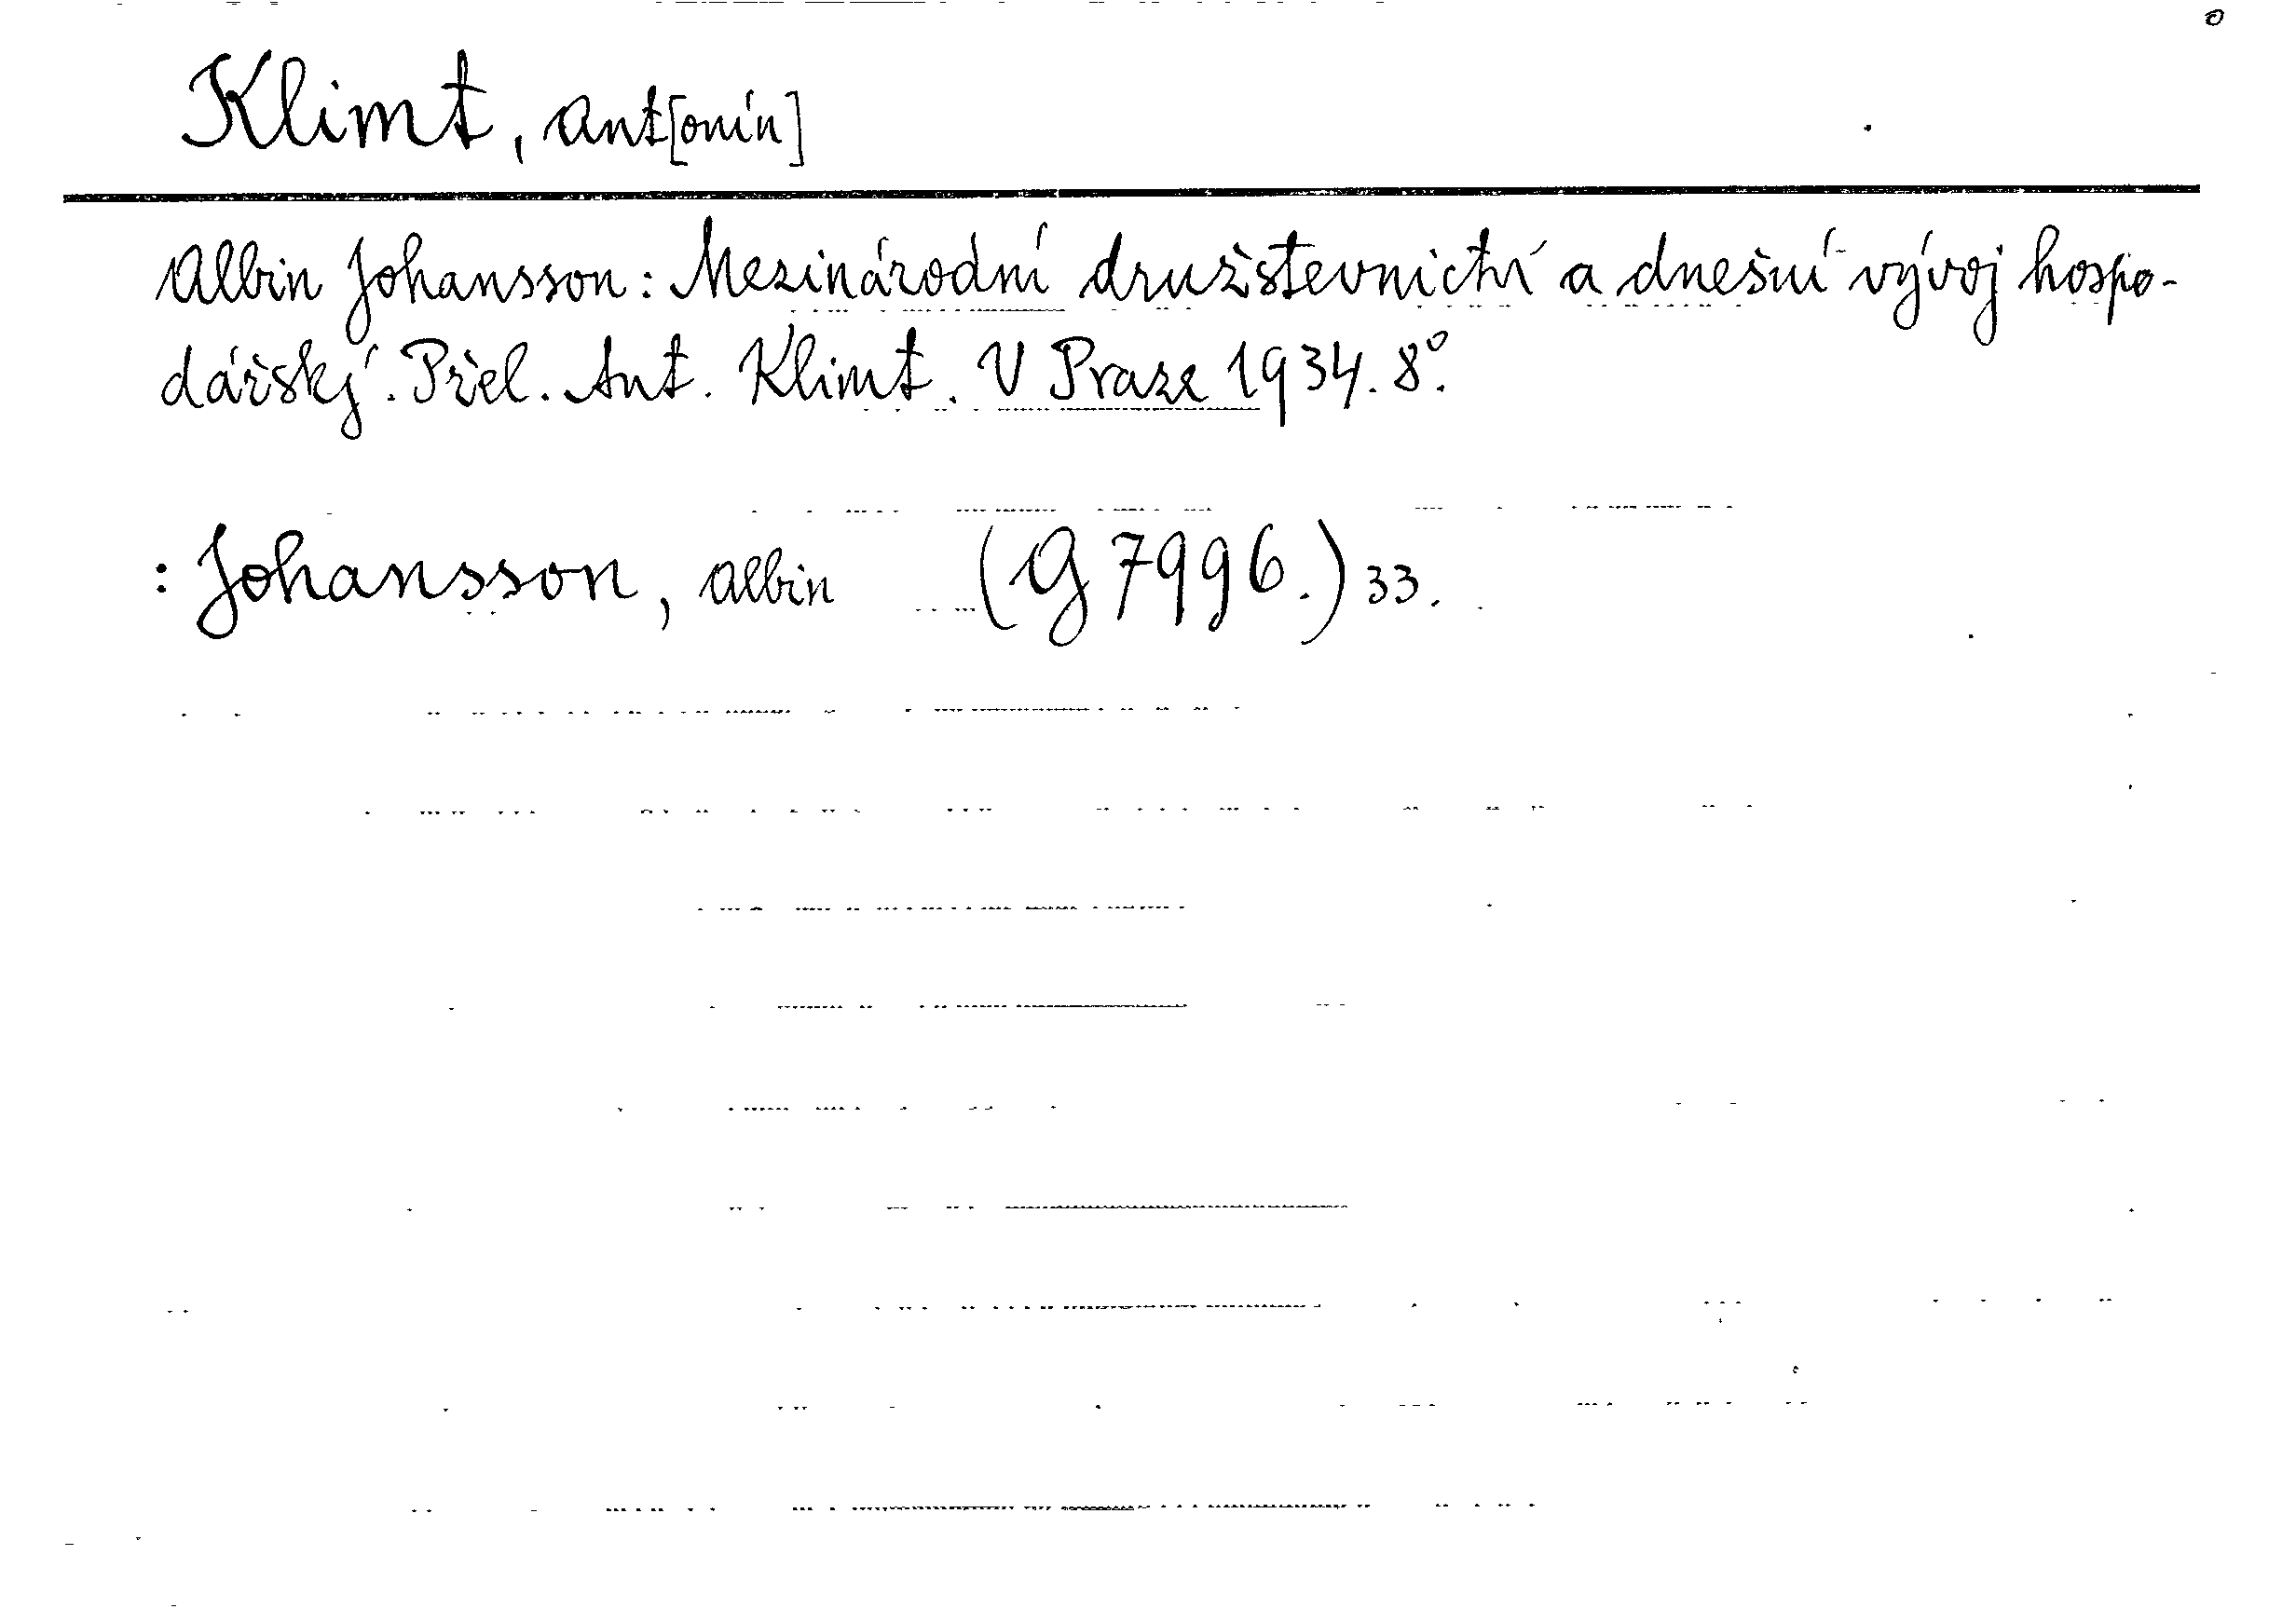 Klimt, Ant[onín]
Albin Johansson: Mezinárodní družstevnictví a dnešní vývoj hospo-
dářský. Přel. Ant. Klimt. V Praze 1934. 8°.
: Johansson, Albin (G 7996.) 33.